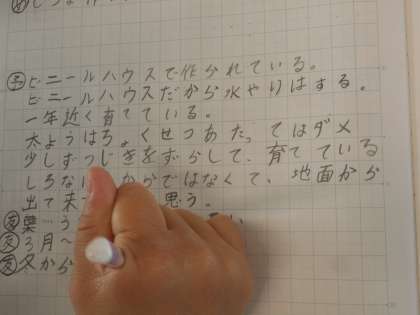 ㋱
㋢ビニールハウスで作られている。
ビニールハウスだから水やりはする。
一年近く育てている。
太ようはちょくせつあたってはダメ
少しずつじきをずらして、育てている
しろな からではなくて、地面から
出て来 思う。
葉…う
3月〜
冬から